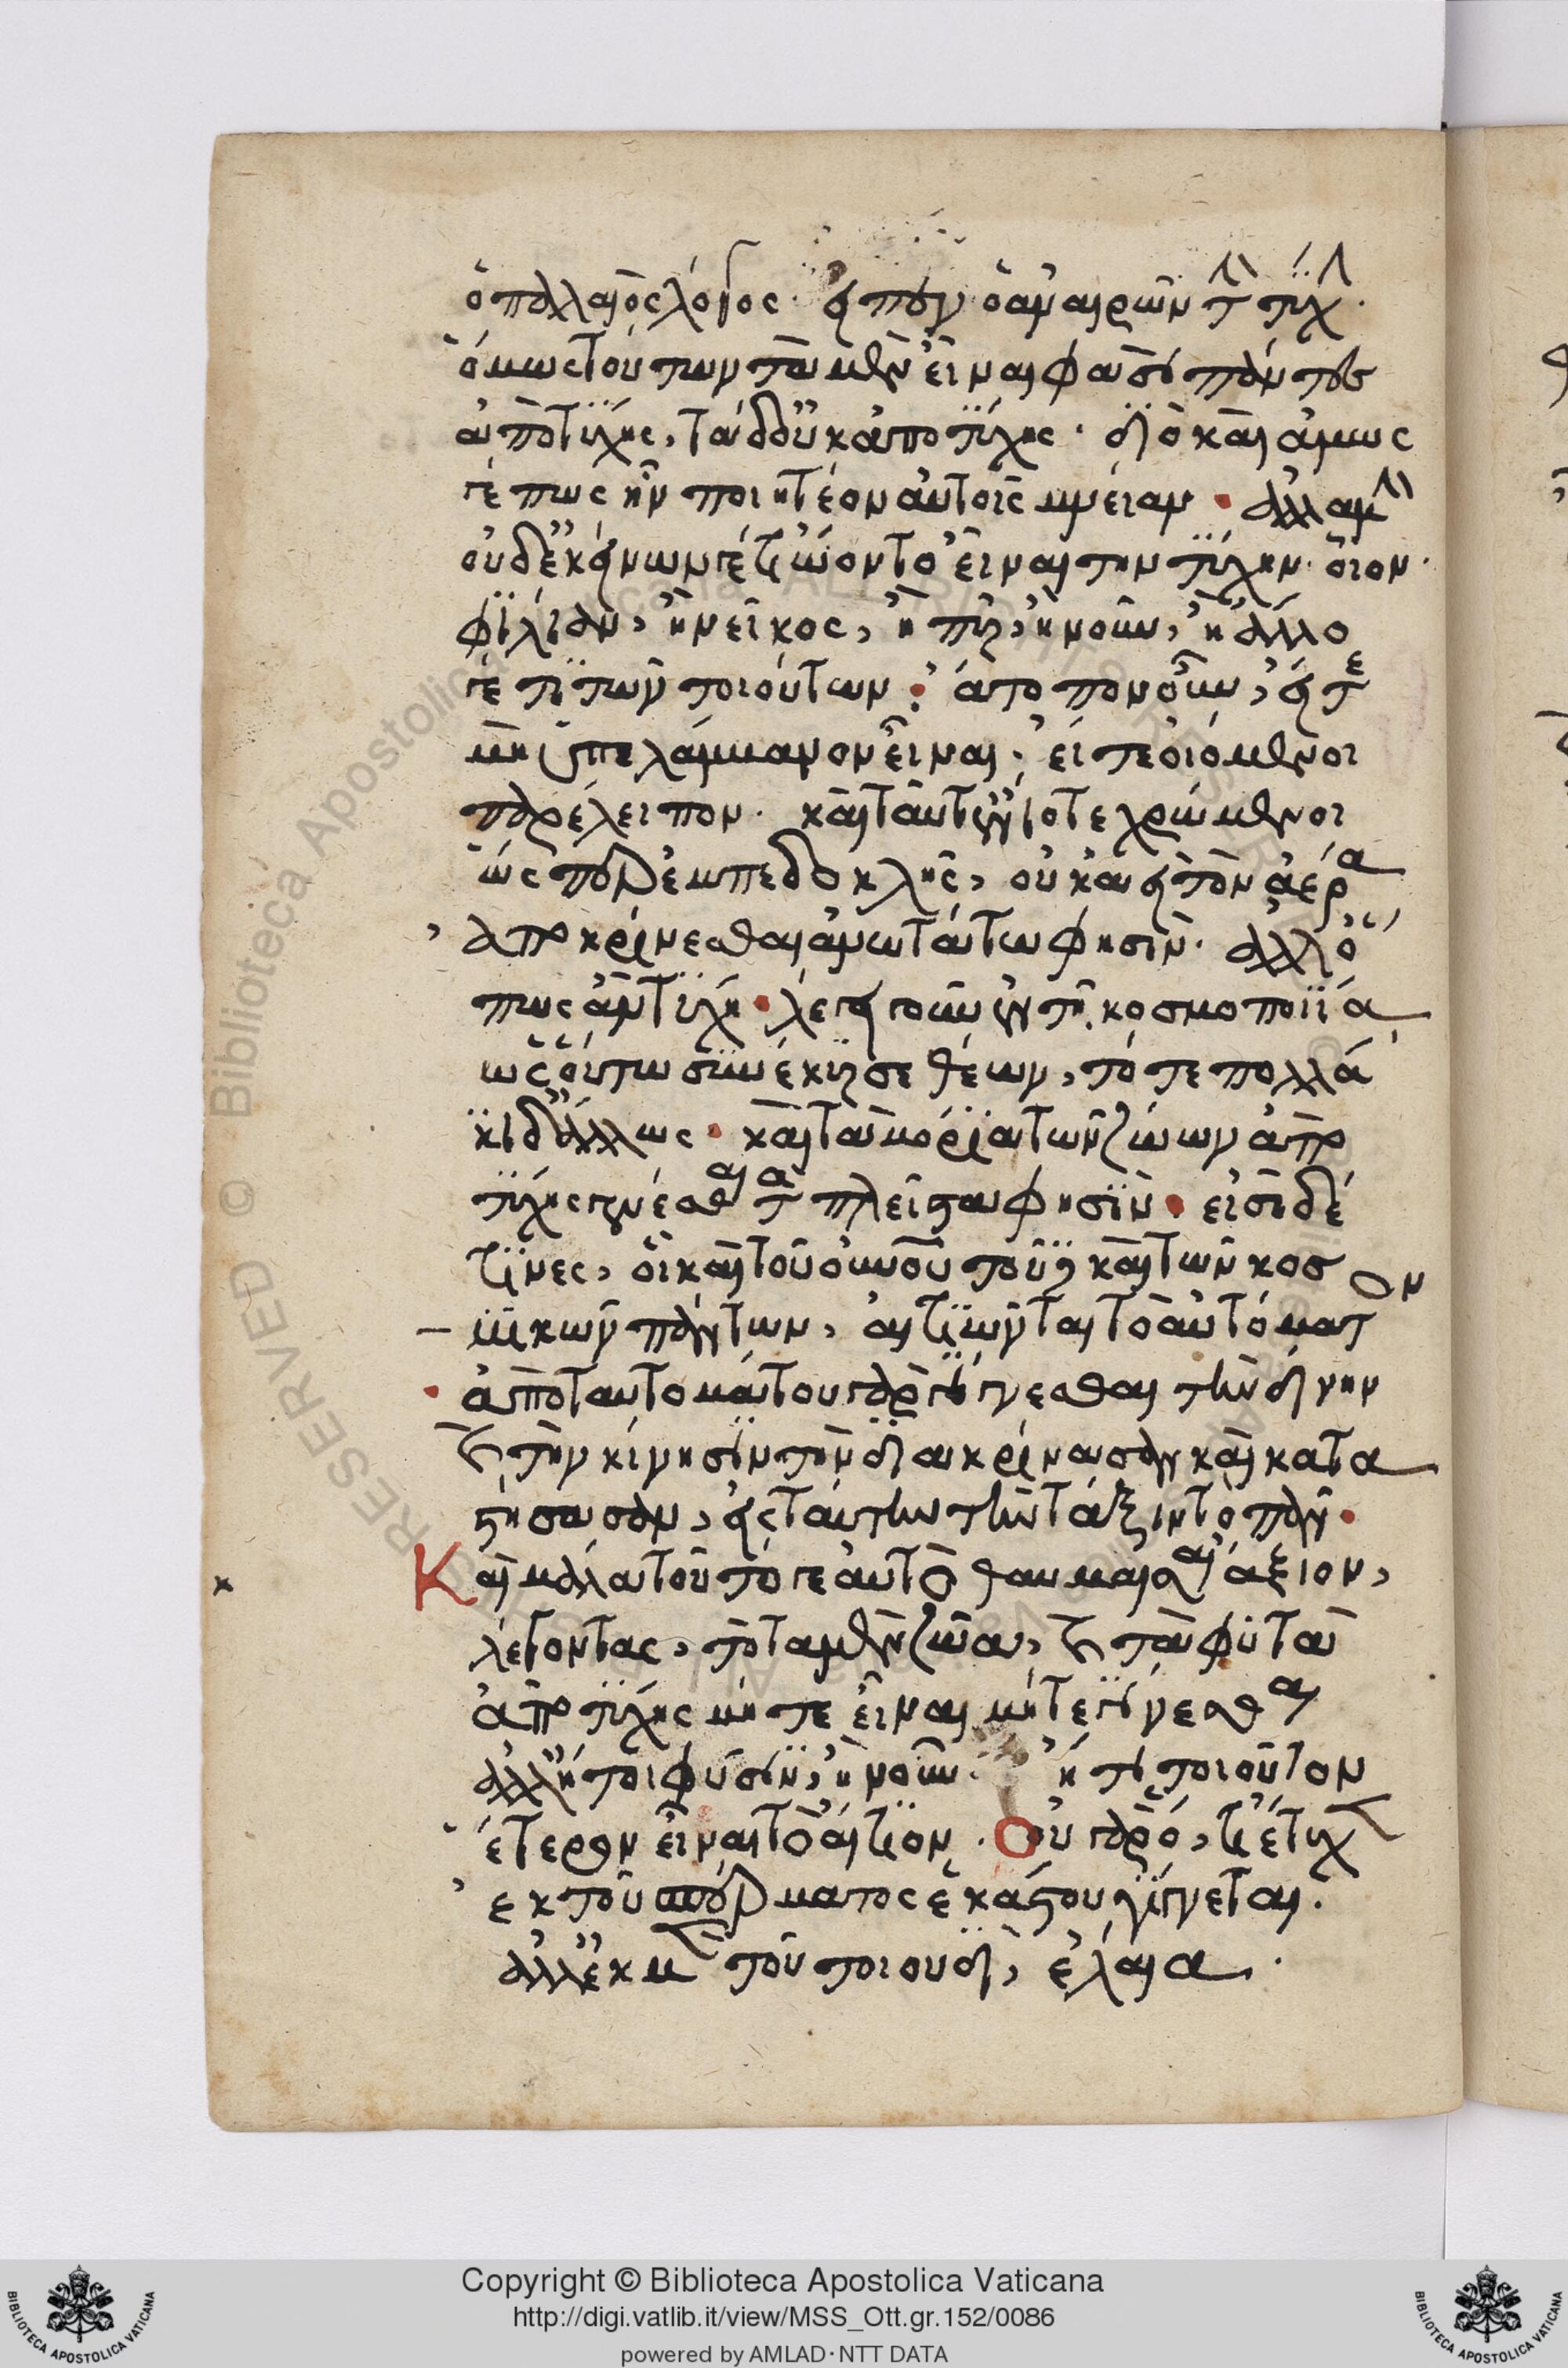 ὁ παλαιὸς λόγος. εἶπεν ὁ ἀναιρῶν τὴν τύχην.
ὅμως τούτων τὰ μὲν εἶναί φασι πάντες
ἀπὸ τύχης, τὰ δ' οὐκ ἀπὸ τύχης. διὸ καὶ ἁμῶς
γέ πως ἦν ποιητέον αὐτοῖς μνείαν. ἀλλὰ μὴν
οὐδ' ἐκείνων γέ τι ᾤοντο εἶναι τὴν τύχην. οἷον
φιλίαν, ἢ νεῖκος, ἢ πῦρ, ἢ νοῦν, ἢ ἄλλο
γέ τι τῶν τοιούτων. ἄτοπον οὖν, εἴτε
μὴ ὑπελάμβανον εἶναι. εἴτε οἰόμενοι
παρέλειπον. καὶ ταῦτ' ἐνίοτε χρώμενοι
ὥσπερ ἐμπεδοκλῆς, οὐκ ἀεὶ τὸν ἀέρα
ἀποκρίνεσθαι ἀνωτάτω φησίν. ἀλλ' ὅ
πως ἂν τύχῃ. λέγει γοῦν ἐν τῇ κοσμοποιία
ὡς οὕτω συνέκυρσε θέων, τότε πολλά
κι δ' ἄλλως. καὶ τὰ μόρια τῶν ζώων ἀπὸ
τύχης γενέσθαι τὰ πλεῖστα φησίν. εἰσὶ δέ
τινες, οἳ καὶ τοῦ οὐνοῦ τοῦδε καὶ τῶν κοσ
μικῶν πάντων, αἰτιῶνται τὸ αὐτόματον
ἀπὸ ταυτομάτου γὰρ γίγνεσθαι τὴν δίνην
καὶ τὴν κίνησιν τὴν διακρίνασαν καὶ κατα
στήσασαν, εἰς ταύτην τὴν τάξιν τὸ πᾶν.
Καὶ μάλα τοῦτό γε αὐτὸ θαυμάσαι ἄξιον,
λέγοντας, τὸ τὰ μὲν ζῶα, καὶ τὰ φυτὰ
ἀπὸ τύχης μήτε εἶναι μήτε γίγνεσθαι
ἀλλ' ἤτοι φύσιν, ἢ νοῦν. ἤ τι τοιοῦτον
ἕτερον εἶναι τὸ αἴτιον. Οὐ γὰρ ὅ, τι ἔτυχεν
ἐκ τοῦ σπέρματος ἑκάστου γίγνεται.
ἀλλ' ἐκ μὲν τοῦ τοιουδὶ, ἐλαία.
Copyright © Biblioteca Apostolica Vaticana
http://digi.vatlib.it/view/MSS_Ott.gr.152/0086
powered by AMLAD·NTT DATA